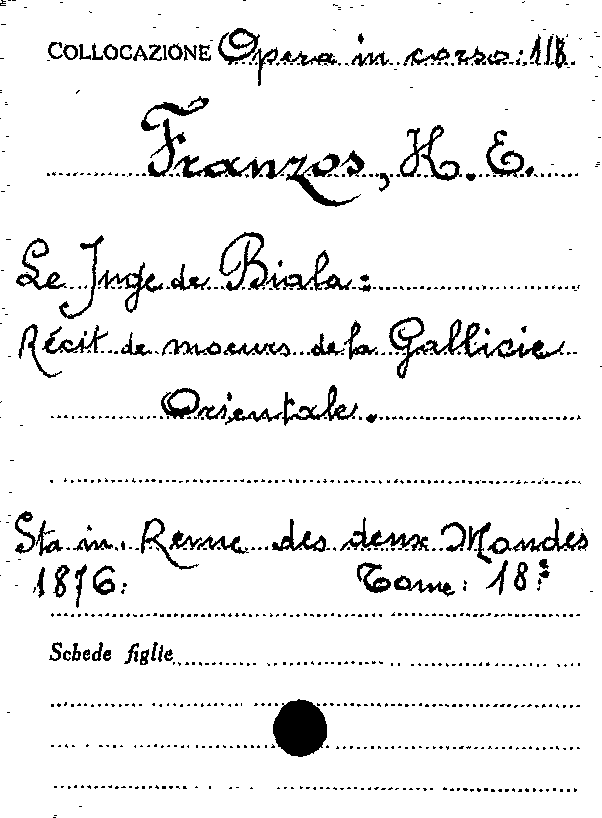 COLLOCAZIONE Opera in corso: 118.
Franzos, K. E.
Le Juge de Biala:
Récit de moeurs de la Gallicie
Orientale.
Sta in. Revue des deux Mondes
1876: Tome: 18:
Schede figlie